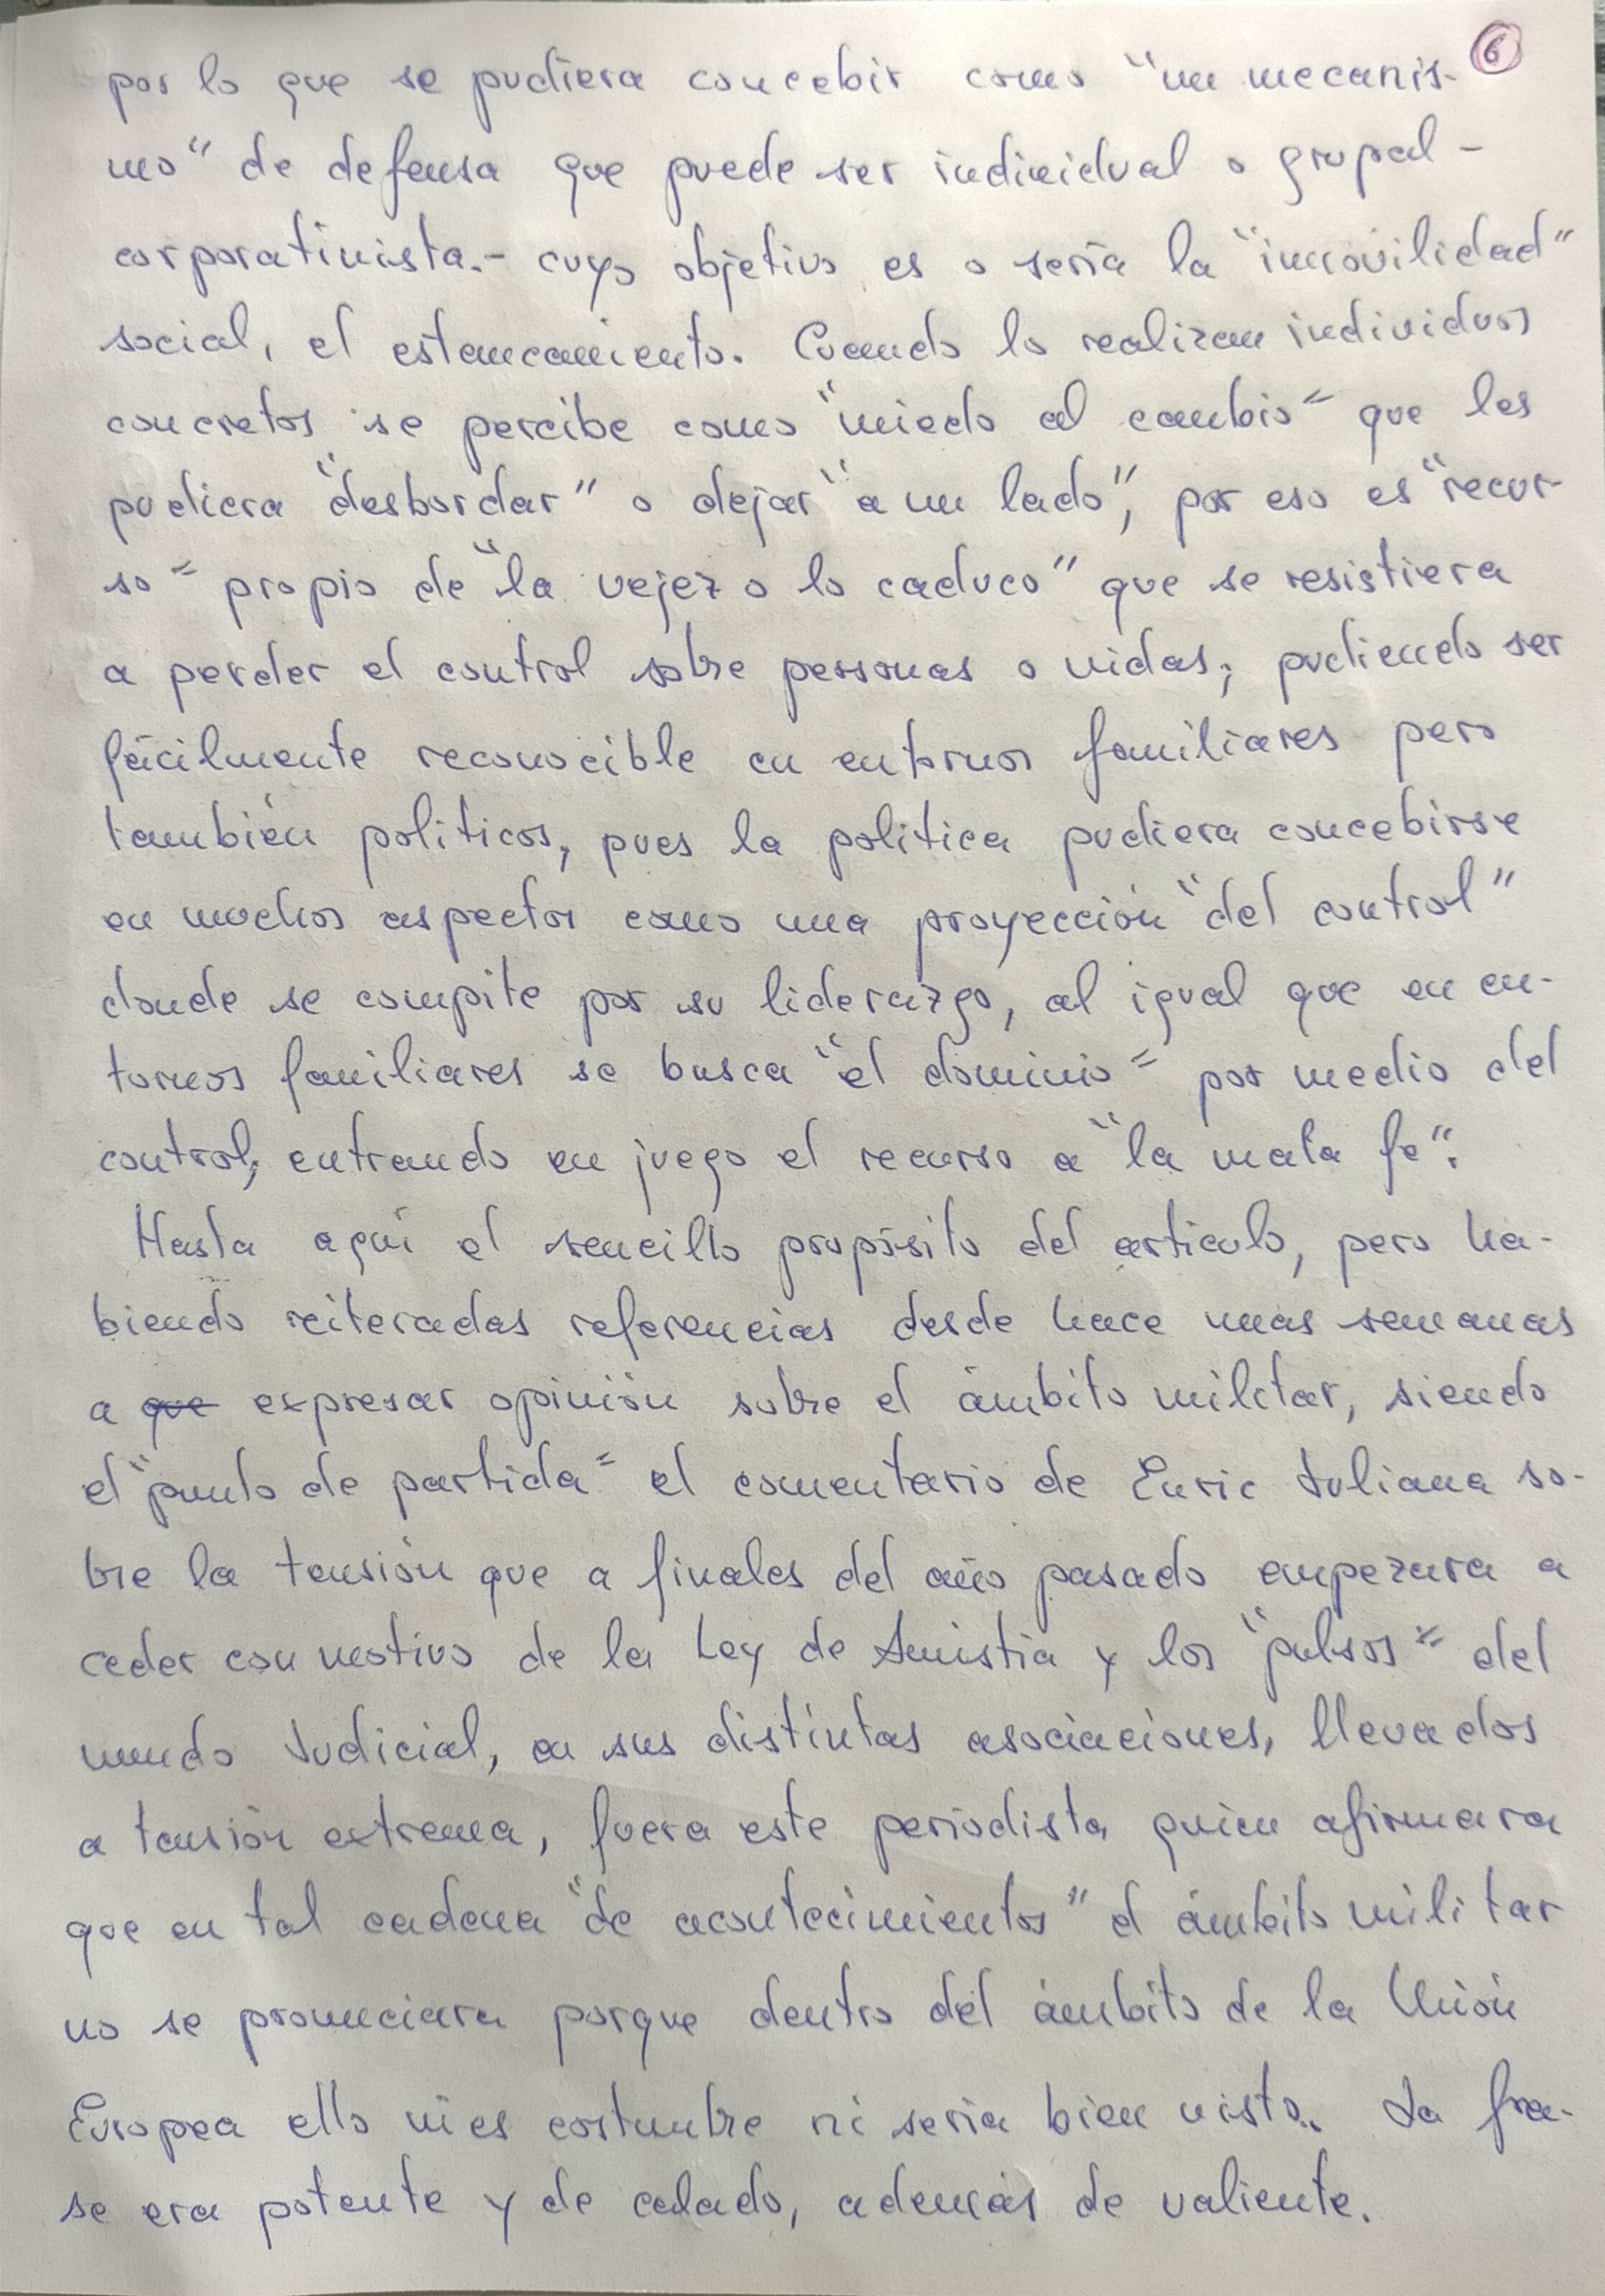 6
por lo que se pudiera concebir como "un mecanis-
mo" de defensa que puede ser individual o grupal -
corporativista.- cuyo objetivo es o sería la "inmovilidad"
social, el estancamiento. Cuando lo realizan individuos
concretos se percibe como "miedo al cambio" que les
pudiera "desbordar" o dejar "a un lado", por eso es "recur-
so" propio de "la vejez o lo caduco" que se resistiera
a perder el control sobre personas o vidas; pudiendo ser
fácilmente reconocible en entornos familiares pero
también políticos, pues la política pudiera concebirse
en muchos aspectos como una proyección "del control"
donde se compite por su liderazgo, al igual que en en-
tornos familiares se busca "el dominio" por medio del
control, entrando en juego el recurso a "la mala fe".
Hasta aquí el sencillo propósito del artículo, pero ha-
biendo reiteradas referencias desde hace unas semanas
a que expresar opinión sobre el ámbito militar, siendo
el "punto de partida" el comentario de Enric Juliana so-
bre la tensión que a finales del año pasado empezara a
ceder con motivo de la Ley de Amistia y los "pulsos" del
mundo Judicial, en sus distintas asociaciones, llevados
a tensión extrema, fuera este periodista quien afirmara
que en tal cadena "de acontecimientos" el ámbito militar
no se pronunciara porque dentro del ámbito de la Unión
Europea ello ni es costumbre ni sería bien visto. La fra-
se era potente y de calado, además de valiente.